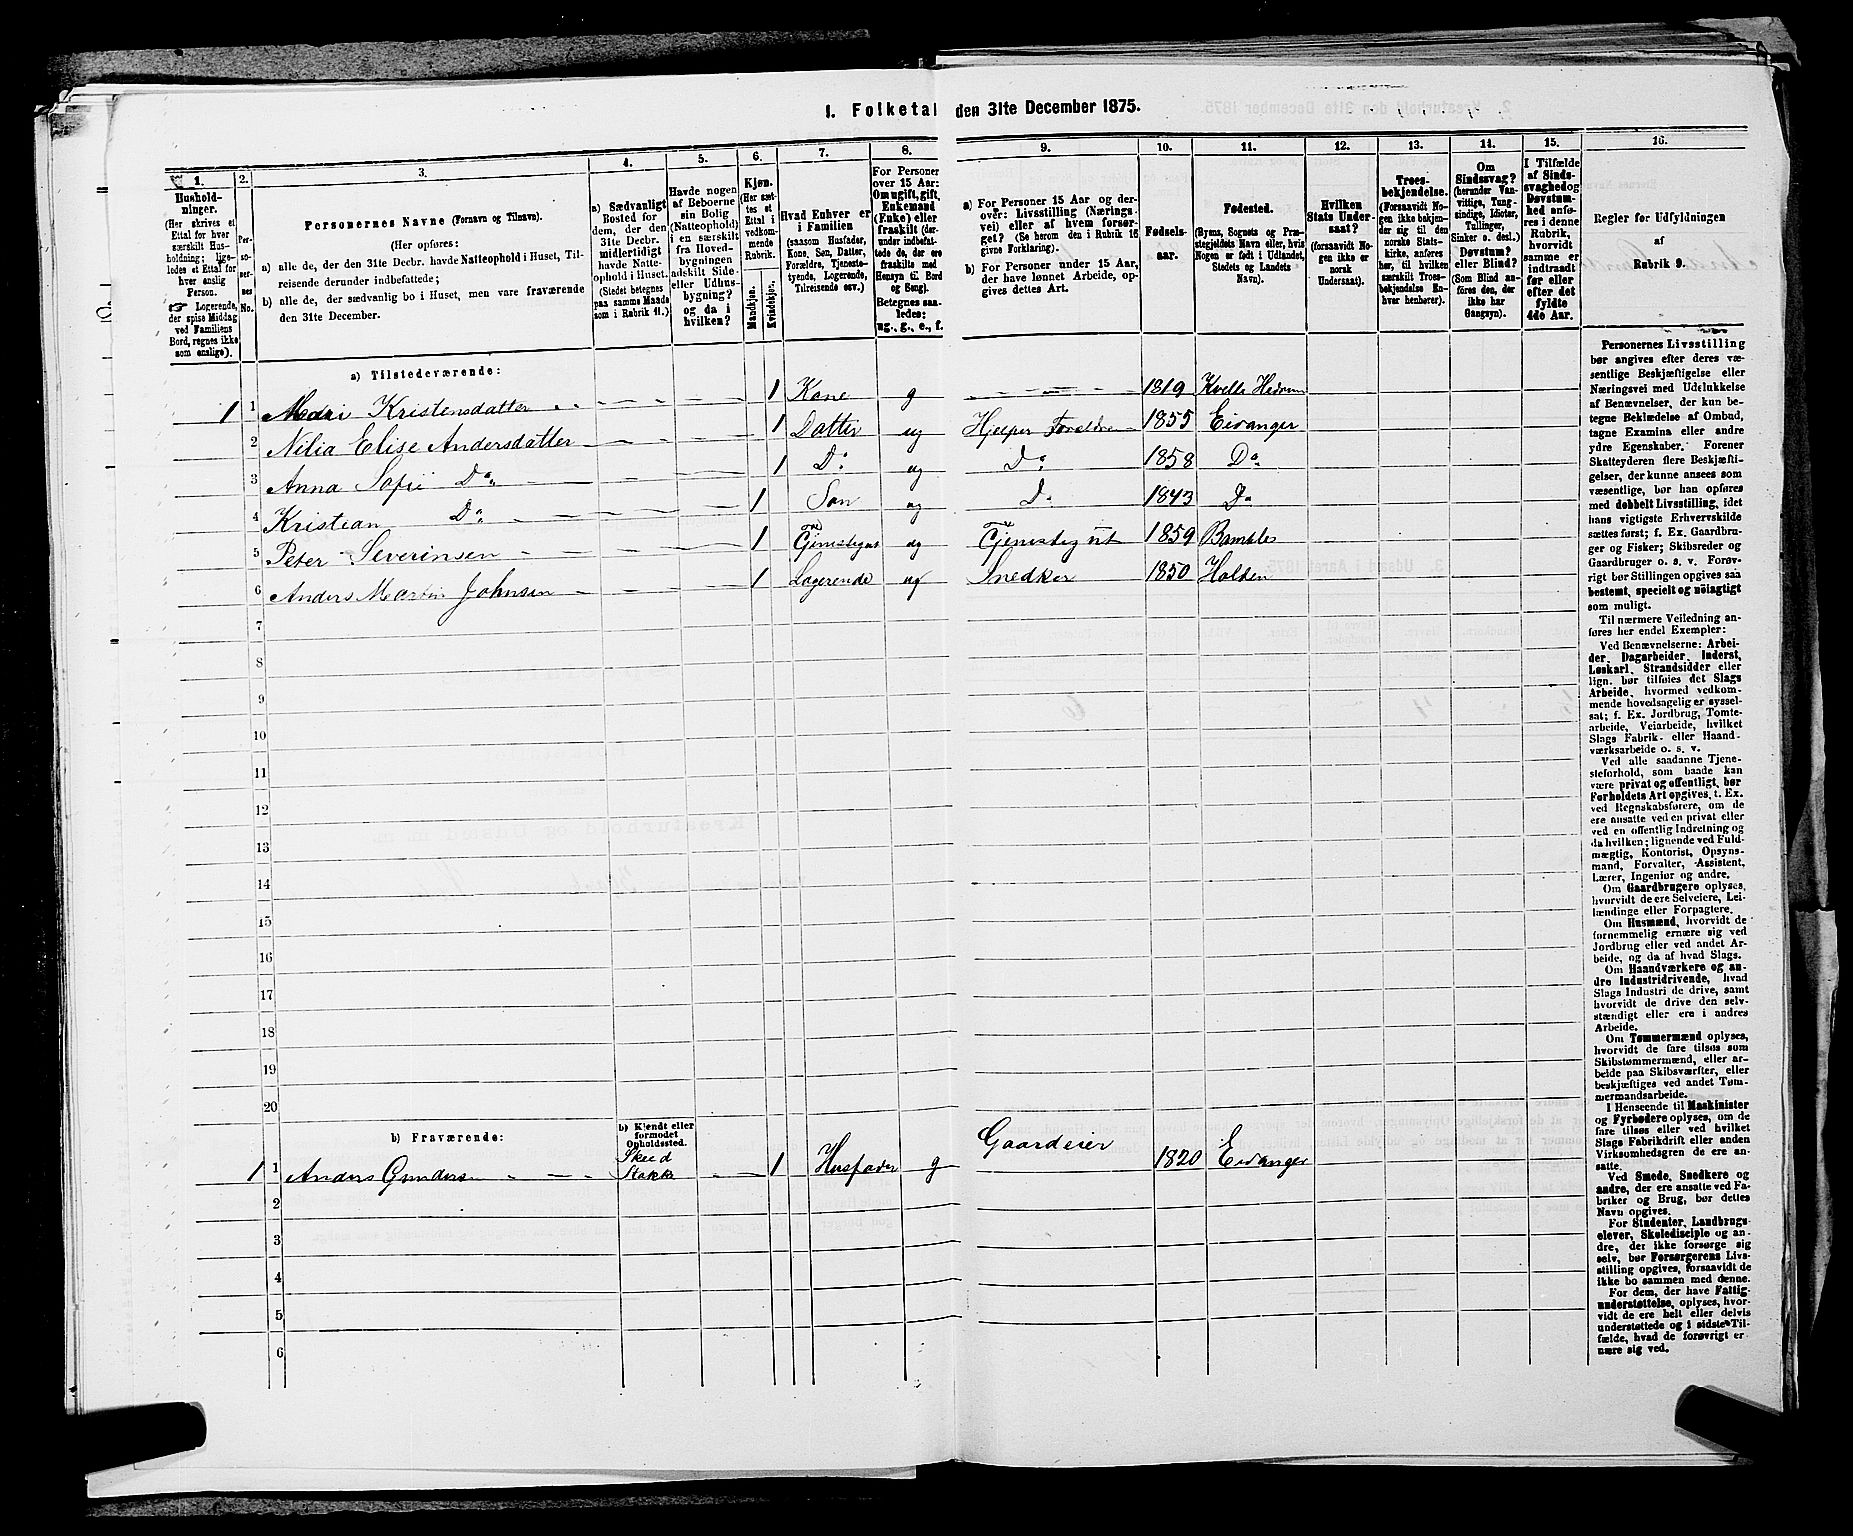 1. Folketal den 31te December 1875.
1. Husholdninger. (Her skrives et Ettal for hver særskilt Husholdning; ligeledes et Ettal for hver enslig Person. Logerende, der spise Middag ved Familiens Bord, regnes ikke som enslige).
2. Personernes No.
3. Personernes Navne (Fornavn og Tilnavn).
(Her opføres:
a) alle de, der den 31te Decbr. havde Natteophold i Huset, Tilreisende derunder indbefattede;
b) alle de, der sædvanlig bo i Huset, men vare fraværende den 31te December.
4. a) Sædvanligt Bosted for dem, der den 31te Decbr. midlertidigt havde Natteophold i Huset. (Stedet betegnes paa samme Maade som i Rubrik 11.)
5. Havde nogen af Beboerne sin Bolig (Natteophold) i en særskilt fra Hovedbygningen adskilt Side- eller Udhusbygning? og da i hvilken?
6. Kjøn. (Her sættes et Ettal i vedkommende Rubrik. Mandkjøn. Kvindekjøn.
7. Hvad Enhver er i Familien (saasom Husfader, Kone, Søn, Datter, Forældre, Tjenestetyende, Logerende, Tilreisende osv.)
8. For Personer over 15 Aar: Om ugift, gift, Enkemand (Enke) eller fraskilt (derunder indbefattede de, der ere fraskilte med Hensyn til Bord og Seng). Betegnes saaledes: ug., g., e., f.
9. a) For Personer 15 Aar og derover: Livsstilling (Næringsvei) eller af hvem forsørget? (Se herom den i Rubrik 16 givne Forklaring).
b) For Personer under 15 Aar, der have lønnet Arbeide, opgives dettes Art.
10. Fødselsaar.
11. Fødested. (Byens, Sognets og Præstegjeldets Navn eller, hvis Nogen er født i Udlandet, Stedets og Landets Navn).
12. Hvilken Stats Undersaat? (forsaavidt Nogen ikke er norsk Undersaat).
13. Troesbekjendelse. (Forsaavidt Nogen ikke bekjender sig til den norske Statskirke, anføres her, til hvilken særskilt Troesbekjendelse Enhver henhører).
14. Om Sindssvag? (herunder Vanvittige, Tungsindige, Idioter, Tullinger, Sinker o. desl.) Døvstum? eller Blind? (Som Blind anføres den, der ikke har Gangsyn).
15. I Tilfælde af Sindssvaghed og Døvstumhed anføres i denne Rubrik, hvorvidt samme er indtraadt før eller efter det fyldte 4de Aar.
16. Regler for Udfyldningen af Rubrik 9.
a) Tilstedeværende:
1 1 Mari Kristensdatter 1 Kone g 1819 Kvelle Hedrum
2 Nilia Elise Andersdatter 1 Datter ug Hjelper Forældre 1855 Eidanger
3 Anna Sofie Do 1 Do ug Do 1858 Do
4 Kristian Do 1 Søn ug Do 1843 Do
5 Peter Severinsen 1 Tjenestegut ug Tjenestegut 1859 Bamble
6 Anders Martin Johnsen 1 Logerende ug Snedker 1850 Holden
7
8
9
10
11
12
13
14
15
16
17
18
19
20
b) Fraværende:
b) Kjendt eller formodet Opholdssted.
1 1 Anders Gundersen 1 Husfader g Gaardeier 1820 Eidanger
2
3
4
5
6
Personernes Livsstilling
bør angives efter deres væ-
sentlige Beskjæftigelse eller
Næringsvei med Udelukkelse
af Benævnelser, der kun be-
tegne Beklædelse af Ombud,
tagne Examina eller andre
ydre Egenskaber. Forener
Skatteyderen flere Beskjæfti-
gelser, der kunne ansees som
væsentlige, bør han opføres
med dobbelt Livsstilling, idet
hans vigtigste Erhvervskilde
sættes først; f. Ex. Gaardbru-
ger og Fisker; Skibsreder og
Gaardbruger o. s. v. Forøv-
rigt bør Stillingen opgives saa
bestemt, specielt og nøiagtigt
som muligt.
Til nærmere Veiledning an-
føres her endel Exempler:
Ved Benævnelserne: Arbei-
der, Dagarbeider, Inderst,
Løskarl, Strandsidder eller
lign. bør tilføies det Slags
Arbeide, hvormed vedkom-
mende hovedsagelig er syssel-
sat; f. Ex. Jordbrug, Tomte-
arbeide, Veiarbeide, hvilket
Slags Fabrik- eller Haand-
værksarbeide o. s. v.
Ved alle saadanne Tjene-
steforhold, som baade kan
være privat og offentligt, bør
Forholdets Art opgives, t. Ex.
ved Regnskabsførere, om de
ere ansatte ved en privat eller
ved en offentlig Indretning og
da hvilken; lignende ved Fuld-
mægtig, Kontorist, Opsyns-
mand, Forvalter, Assistent,
Lærer, Ingeniør og andre.
Om Gaardbrugere oplyses,
hvorvidt de ere Selveiere, Lei-
lændinge eller Forpagtere.
Om Husmænd, hvorvidt de
fornemmelig ernære sig ved
Jordbrug eller ved andet Ar-
beide, og da af hvad Slags.
Om Haandværkere og an-
dre Industridrivende, hvad
Slags Industri de drive, samt
hvorvidt de drive den selv-
stændigt eller ere i andres
Arbeide.
Om Tømmermænd oplyses,
hvorvidt de fare tilsøs som
Skibstømmermænd, eller ar-
beide paa Skibsværfter, eller
beskjæftiges ved andet Tøm-
mermandsarbeide.
I Henseende til Maskinister
og Fyrbødere oplyses, om de
fare tilsøs eller ved hvilket
Slags Fabrikdrift eller anden
Virksomhedsgren de ere an-
satte.
Ved Smede, Snedkere og
andre, der ere ansatte ved Fa-
briker og Brug, bør dettes
Navn opgives.
For Studenter, Landbrugs-
elever, Skoledisciple og an-
dre, der ikke forsørge sig
selv, bør Forsørgerens Livs-
stilling opgives, forsaavidt de
ikke bo sammen med denne.
For dem, der have Fattig-
understøttelse, oplyses, hvor-
vidt de ere helt eller delvis
understøttede og i sidste Til-
fælde, hvad de forøvrigt er-
nære sig ved.